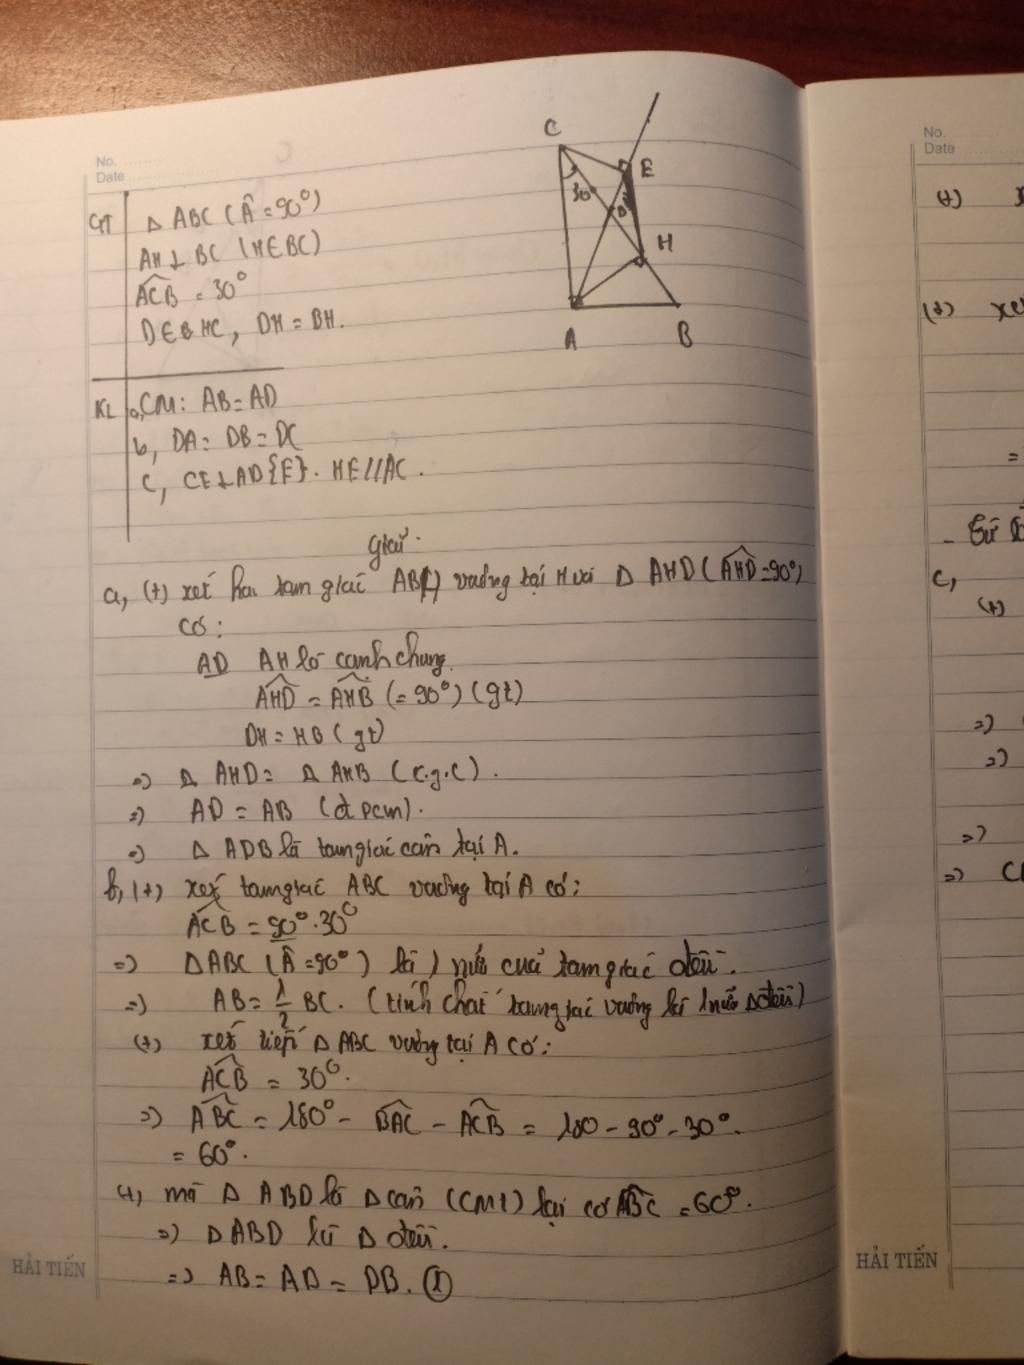 No.
Date
GT Δ ABC (Â = 90°)
AH ⊥ BC (H∈BC)
ACB = 30°
D∈ HC, DH = BH.
KL a, CM: AB = AD
b, DA = DB = DC
C, CE ⊥ AD {E}. HE // AC.
C
E
30°
D
H
A
B
Giải.
a, (+) xét hai tam giác ABH vuông tại H và Δ AHD (AHD = 90°)
có:
AH là cạnh chung.
AHD = AHB (= 90°) (gt)
DH = HB (gt)
=) Δ AHD = Δ AHB (c.g.c).
=) AD = AB (đpcm).
=) Δ ADB là tam giác cân tại A.
b, (+) xét tam giác ABC vuông tại A có:
ACB = 30°
=) ΔABC (Â = 90°) là nửa của tam giác đều.
=) AB = 1/2 BC. (tính chất tam giác vuông là nửa Δ đều)
(+) xét tiếp Δ ABC vuông tại A có:
ACB = 30°.
=) ABC = 180° - BAC - ACB = 180 - 90° - 30°.
= 60°.
mà Δ ABD là Δ cân (CMT) lại có ABC = 60°.
=) Δ ABD là Δ đều.
=) AB = AD = DB. (1)
HẢI TIẾN
No.
Date
(+)
(+) xét
=
c,
(+)
=)
=)
=)
=)
HẢI TIẾN